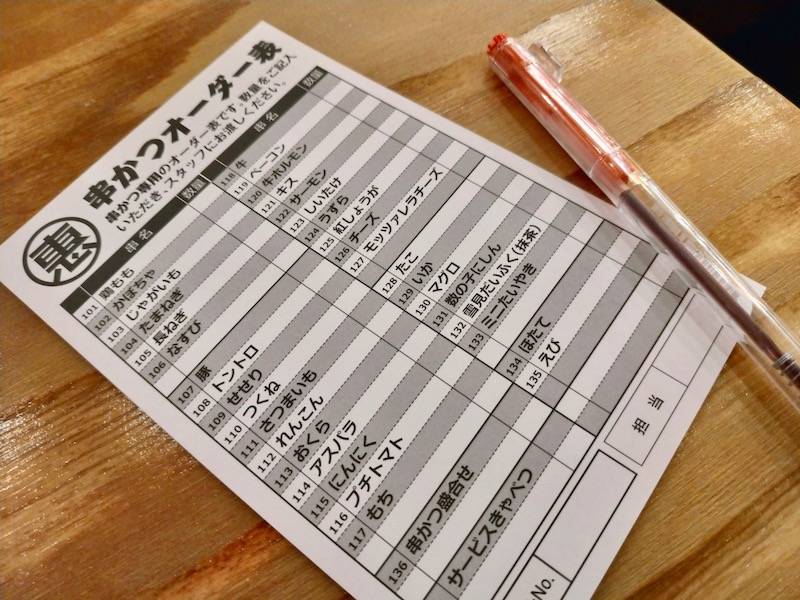 恵
串かつオーダー表
串かつ専用のオーダー表です。数量をご記入
いただき、スタッフにお渡しください。
串 名 数量
101 鶏もも
102 かぼちゃ
103 じゃがいも
104 たまねぎ
105 長ねぎ
106 なすび
107 豚
108 トントロ
109 せせり
110 つくね
111 さつまいも
112 れんこん
113 おくら
114 アスパラ
115 にんにく
116 プチトマト
117 もち
串 名 数量
118 牛
119 ベーコン
120 牛ホルモン
121 キス
122 サーモン
123 しいたけ
124 うずら
125 紅しょうが
126 チーズ
127 モッツァレラチーズ
128 たこ
129 いか
130 マグロ
131 数の子にしん
132 雪見だいふく(抹茶)
133 ミニたいやき
134 ほたて
135 えび
136 串かつ盛合せ
サービスきゃべつ
No.
担 当